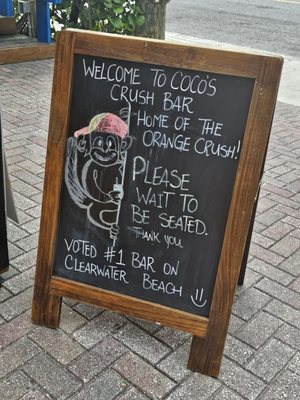 Welcome to Coco's
Crush Bar
Home of the
Orange Crush!
Please
Wait to
Be Seated.
Thank you
Voted #1 Bar on
Clearwater Beach